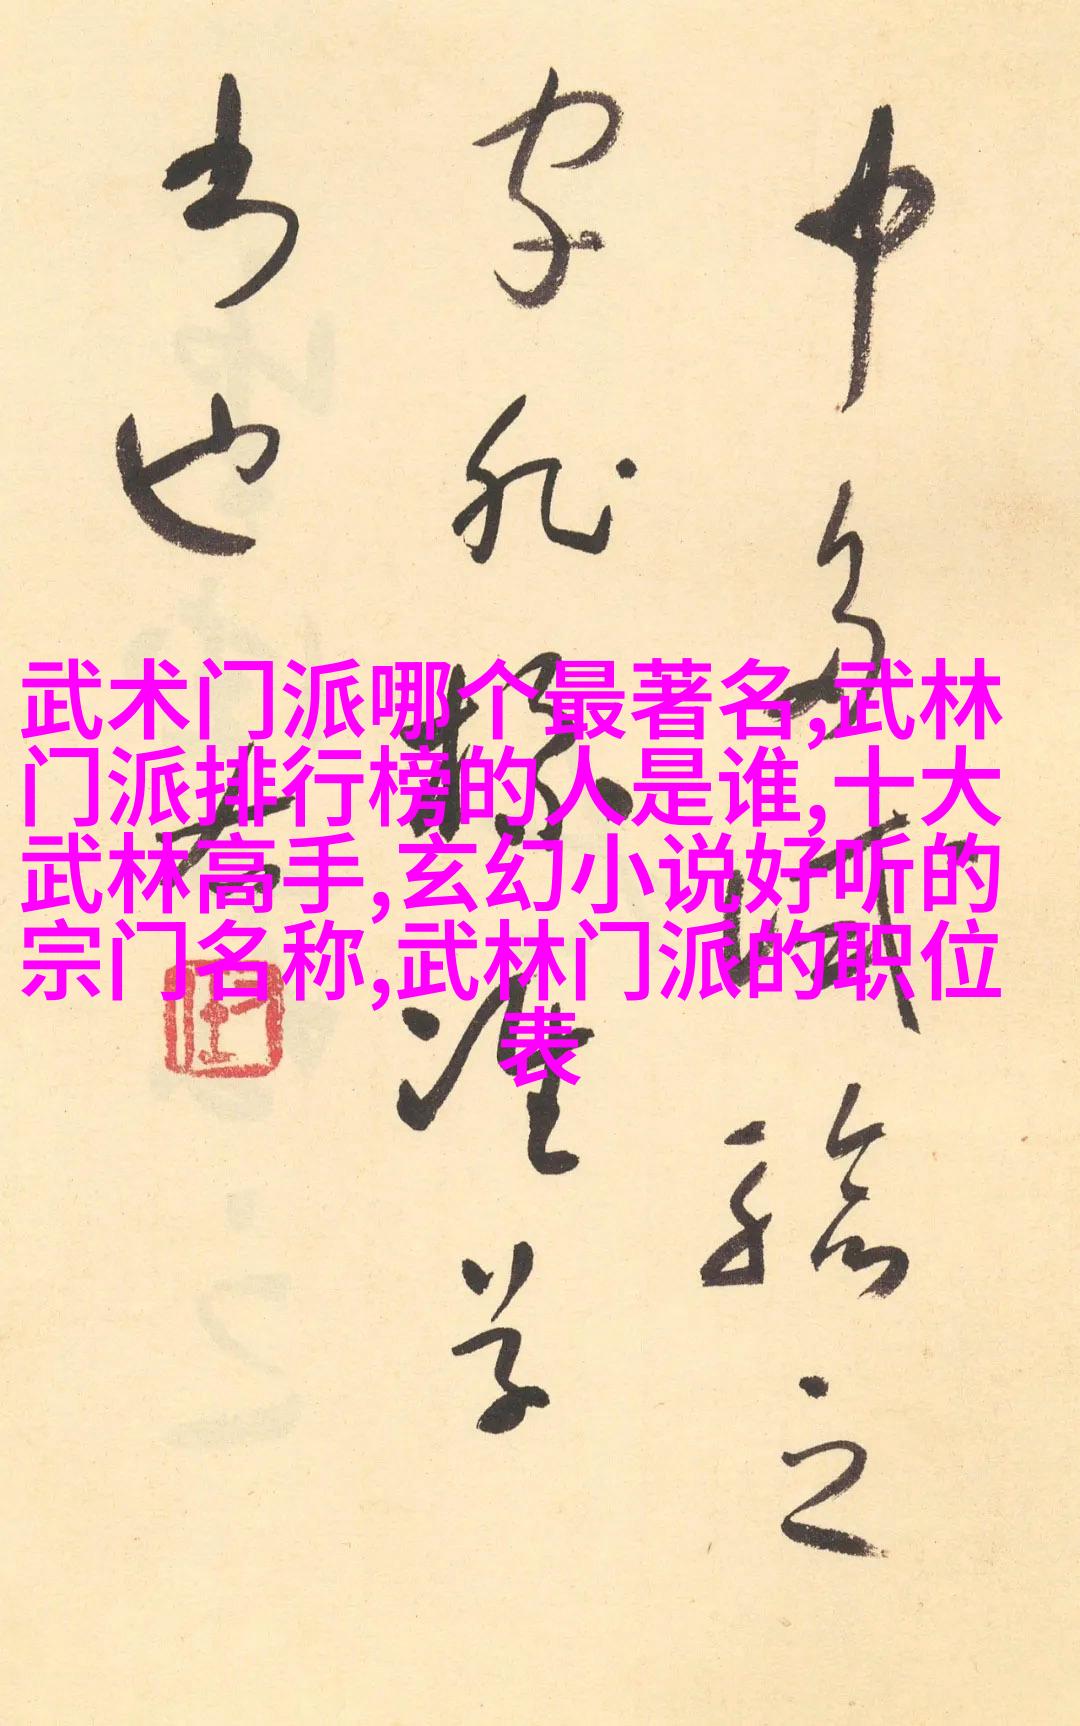 武术门派哪个最著名,武林
门派排行榜的人是谁,十大
武林高手,玄幻小说好听的
宗门名称,武林门派的职位
表
中多之
家非学
也
右